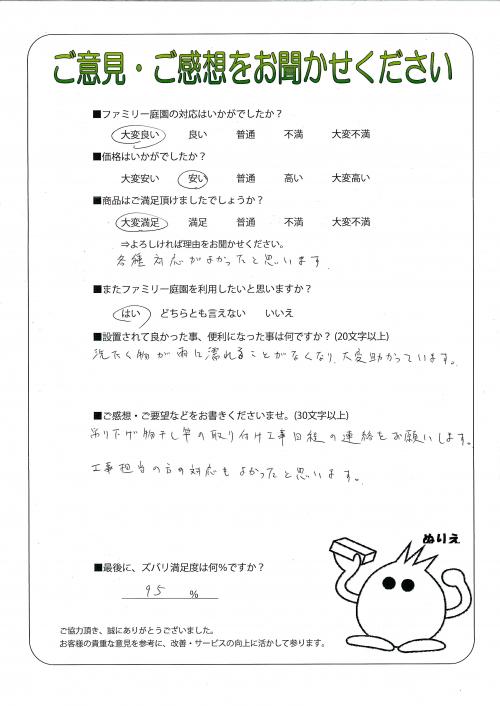 ご意見・ご感想をお聞かせください
■ファミリー庭園の対応はいかがでしたか？
大変良い 良い 普通 不満 大変不満
■価格はいかがでしたか？
大変安い 安い 普通 高い 大変高い
■商品はご満足頂けましたでしょうか？
大変満足 満足 普通 不満 大変不満
⇒よろしければ理由をお聞かせください。
各種対応がよかったと思います
■またファミリー庭園を利用したいと思いますか？
はい どちらとも言えない いいえ
■設置されて良かった事、便利になった事は何ですか？(20文字以上)
洗たく物が雨に濡れることがなくなり、大変助かっています。
■ご感想・ご要望などをお書きくださいませ。(30文字以上)
吊り下げ物干し竿の取り付け工事日程の連絡をお願いします。
工事担当の方の対応もよかったと思います。
ぬりえ
■最後に、ズバリ満足度は何％ですか？
95 %
ご協力頂き、誠にありがとうございました。
お客様の貴重な意見を参考に、改善・サービスの向上に活かして参ります。